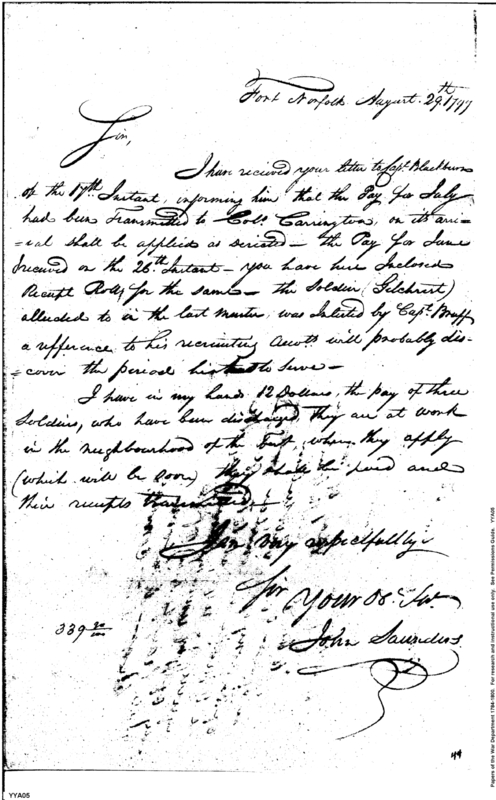 Fort Norfolk August. 29th 1797
Sir,
I have recieved your letter to Capt. Blackburn
of the 17th. Instant, informing him that the Pay for July
had been Transmitted to Colo. Carrington, on its arri-
=val shall be applied as dericted – the Pay for June
I recieved on the 26th Instant – you have here Inclosed
Receipt Rolls for the same – the Soldier (Gilchrist)
alluded to in the last muster, was Inlisted by Capt. Bruff
a refference to his recruiting Accots will probably dis-
=cover the period he has to serve –
I have in my hands 12 Dollars, the pay of three
Soldiers, who have been discharged, they are at work
in the neighbourhood of the Fort, when they apply
(which will be soon) they shall be paid and
their receipts transmitted, –
I am very respectfully
Sir
Your Ob. Ser.
John Saunders
339 90/100
49
YYA05
Papers of the War Department 1784-1800. For research and instructional use only. See Permissions Guide. YYA05